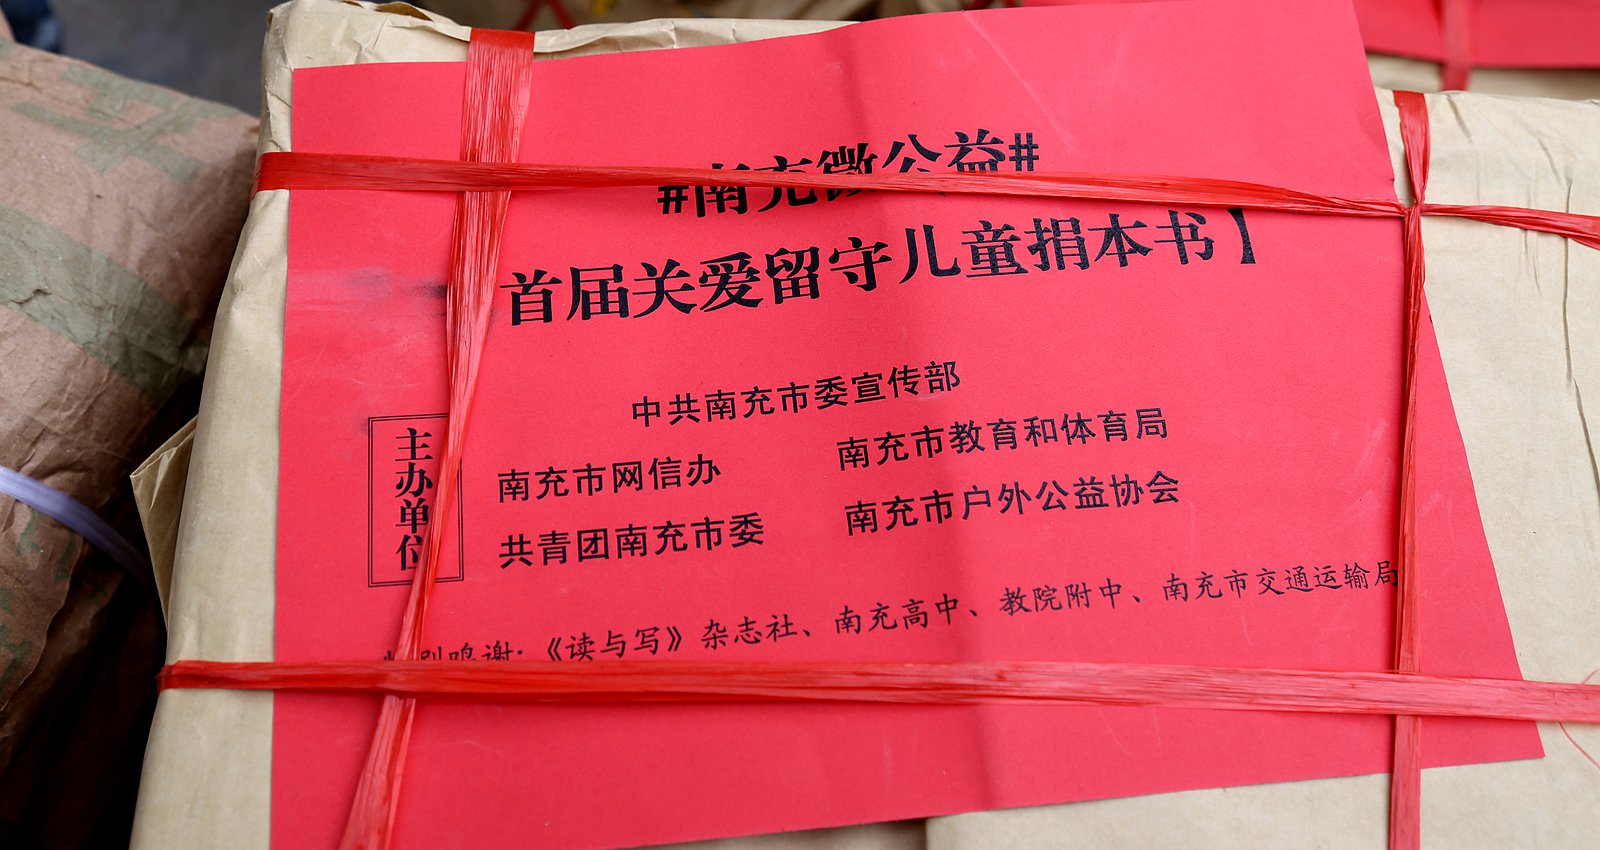 #南充微公益#
首届关爱留守儿童捐本书】
中共南充市委宣传部
主办单位
南充市网信办 南充市教育和体育局
共青团南充市委 南充市户外公益协会
特别鸣谢:《读与写》杂志社、南充高中、教院附中、南充市交通运输局